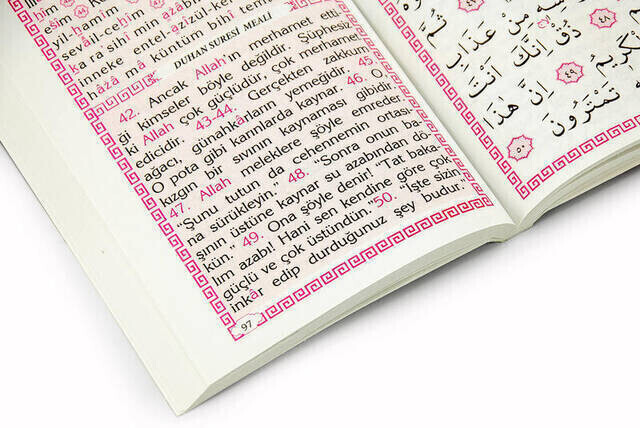 yil-hamîm
sevâil-cehîm
kara'sihî min azâbil-
inneke entel-azîzül-ke
hâzâ mâ küntüm bihî temt
DUHAN SURESİ MEALİ
42. Ancak Allah'ın merhamet etti
ği kimseler böyle değildir. Şüphesiz
ki Allah çok güçlüdür, çok merhamet
edicidir. 43-44. Gerçekten zakkum
ağacı, günahkâların yemeğidir. 45.
O pota gibi karınlarda kaynar. 46. O
kızgın bir sıvının kaynaması gibidir.
47. Allah meleklere şöyle emreder.
"Şunu tutun da cehennemin ortası-
na sürükleyin." 48. "Sonra onun ba-
şının üstüne kaynar su azabından dö-
kün." 49. Ona şöyle denir! "Tat baka-
lım azabı! Hani sen kendine göre çok
güçlü ve çok üstündün."50. "İşte sizin
inkâr edip durduğunuz şey budur.
97
مِنْ عَذَابِ
٤٨
ذُقْ اِنَّكَ اَنْتَ
ٱلْكَرِيمُ ٤٩ اِنَّ هٰذَا
تَمْتَرُونَ ٥٠